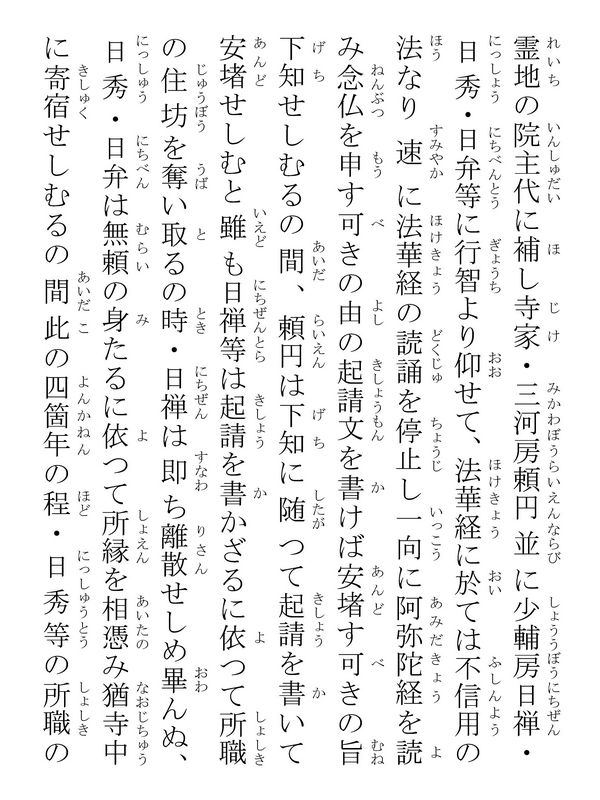 霊地の院主代に補し寺家・三河房頼円並に少輔房日禅・
日秀・日弁等に行智より仰せて、法華経に於ては不信用の
法なり速に法華経の読誦を停止し一向に阿弥陀経を読
み念仏を申す可きの由の起請文を書けば安堵す可きの旨
下知せしむるの間、頼円は下知に随つて起請を書いて
安堵せしむと雖も日禅等は起請を書かざるに依つて所職
の住坊を奪い取るの時・日禅は即ち離散せしめ畢んぬ、
日秀・日弁は無頼の身たるに依つて所縁を相憑み猶寺中
に寄宿せしむるの間此の四箇年の程・日秀等の所職の